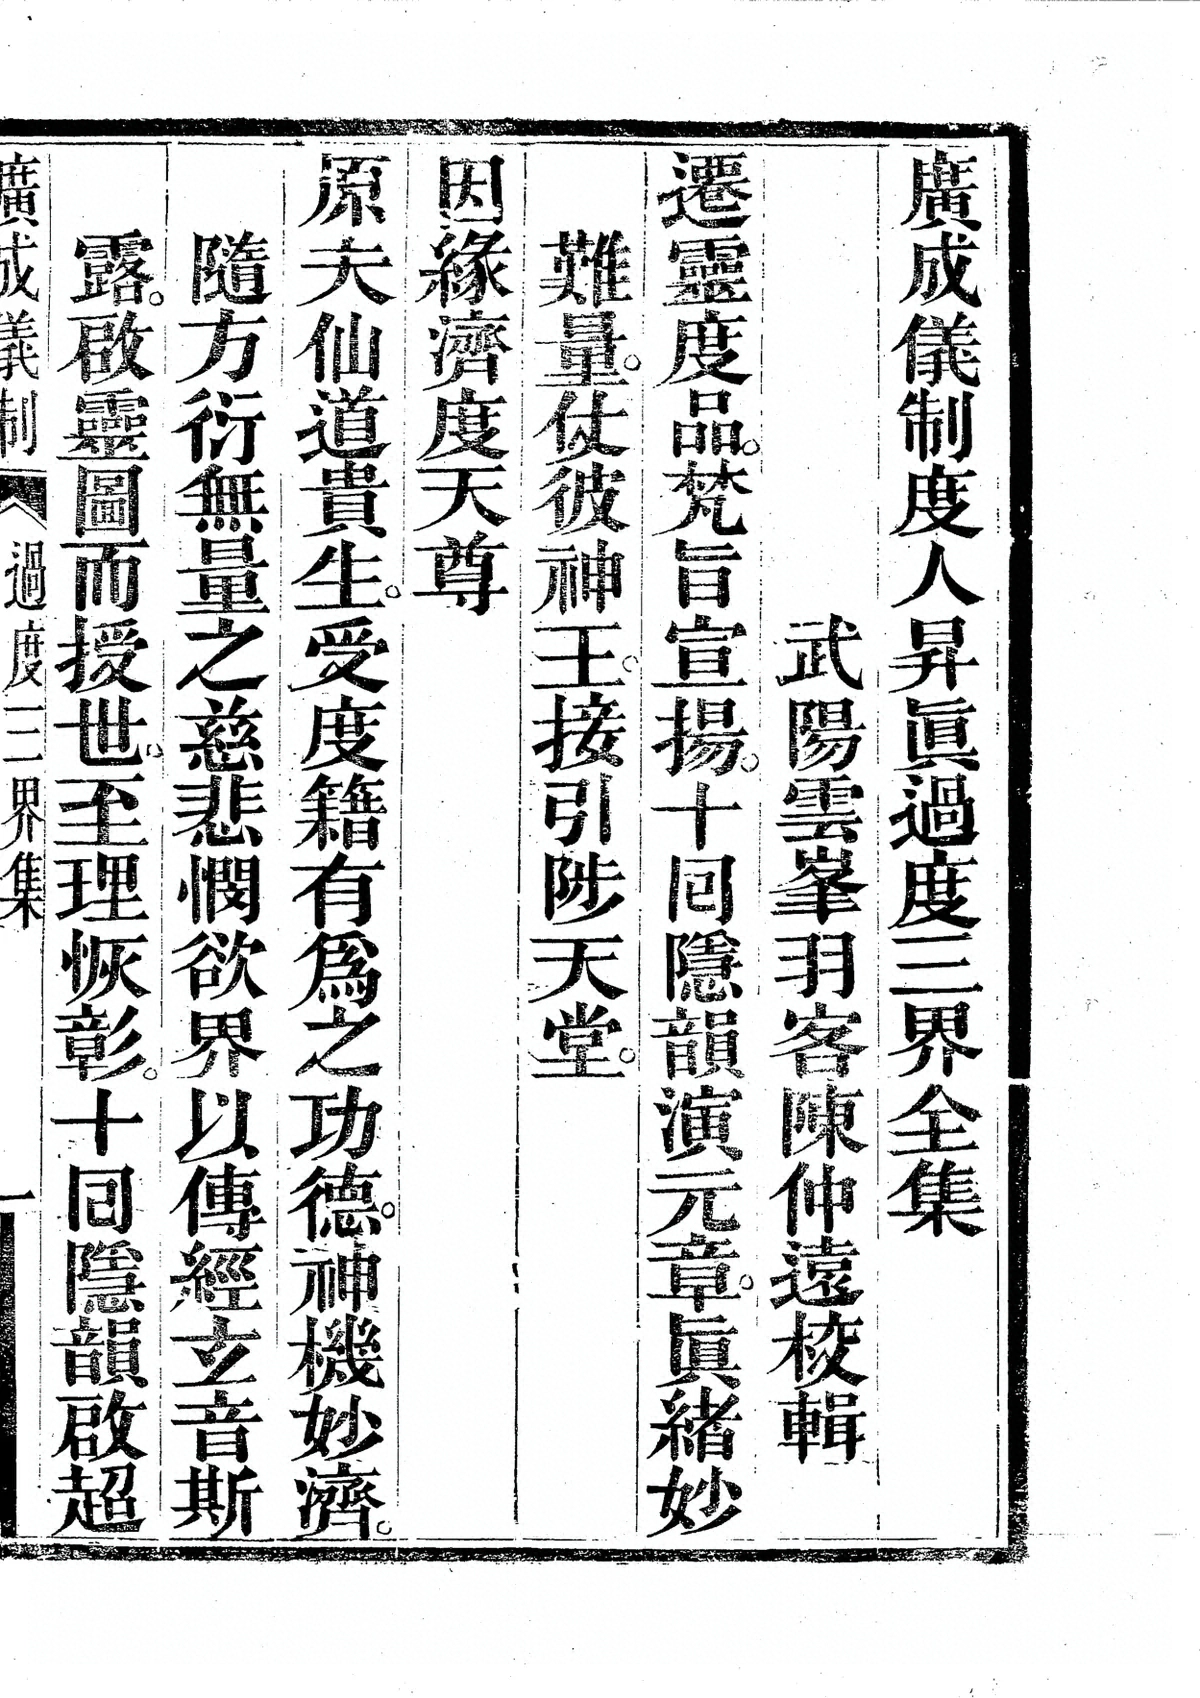 廣成儀制度人昇眞過度三界全集
武陽雲峯羽客陳仲遠校輯
遷靈度品。梵旨宣揚。十回隱韻演元章。眞緒妙
難量。仗彼神王。接引陟天堂。
因緣濟度天尊
原夫仙道貴生。受度籍有爲之功德。神機妙濟。
隨方衍無量之慈悲憫欲界以傳經立音斯
露。啟靈圖而授世。至理恢彰。十回隱韻啟超
廣成儀制 過度三界集 一